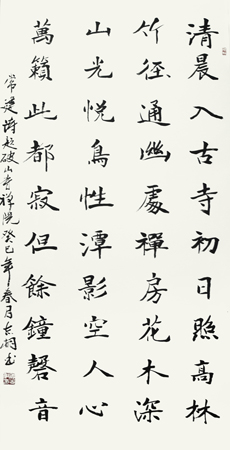 清晨入古寺初日照高林
竹徑通幽處禪房花木深
山光悅鳥性潭影空人心
萬籟此都寂但餘鐘磬音
常建詩題破山寺禪院癸巳年春月